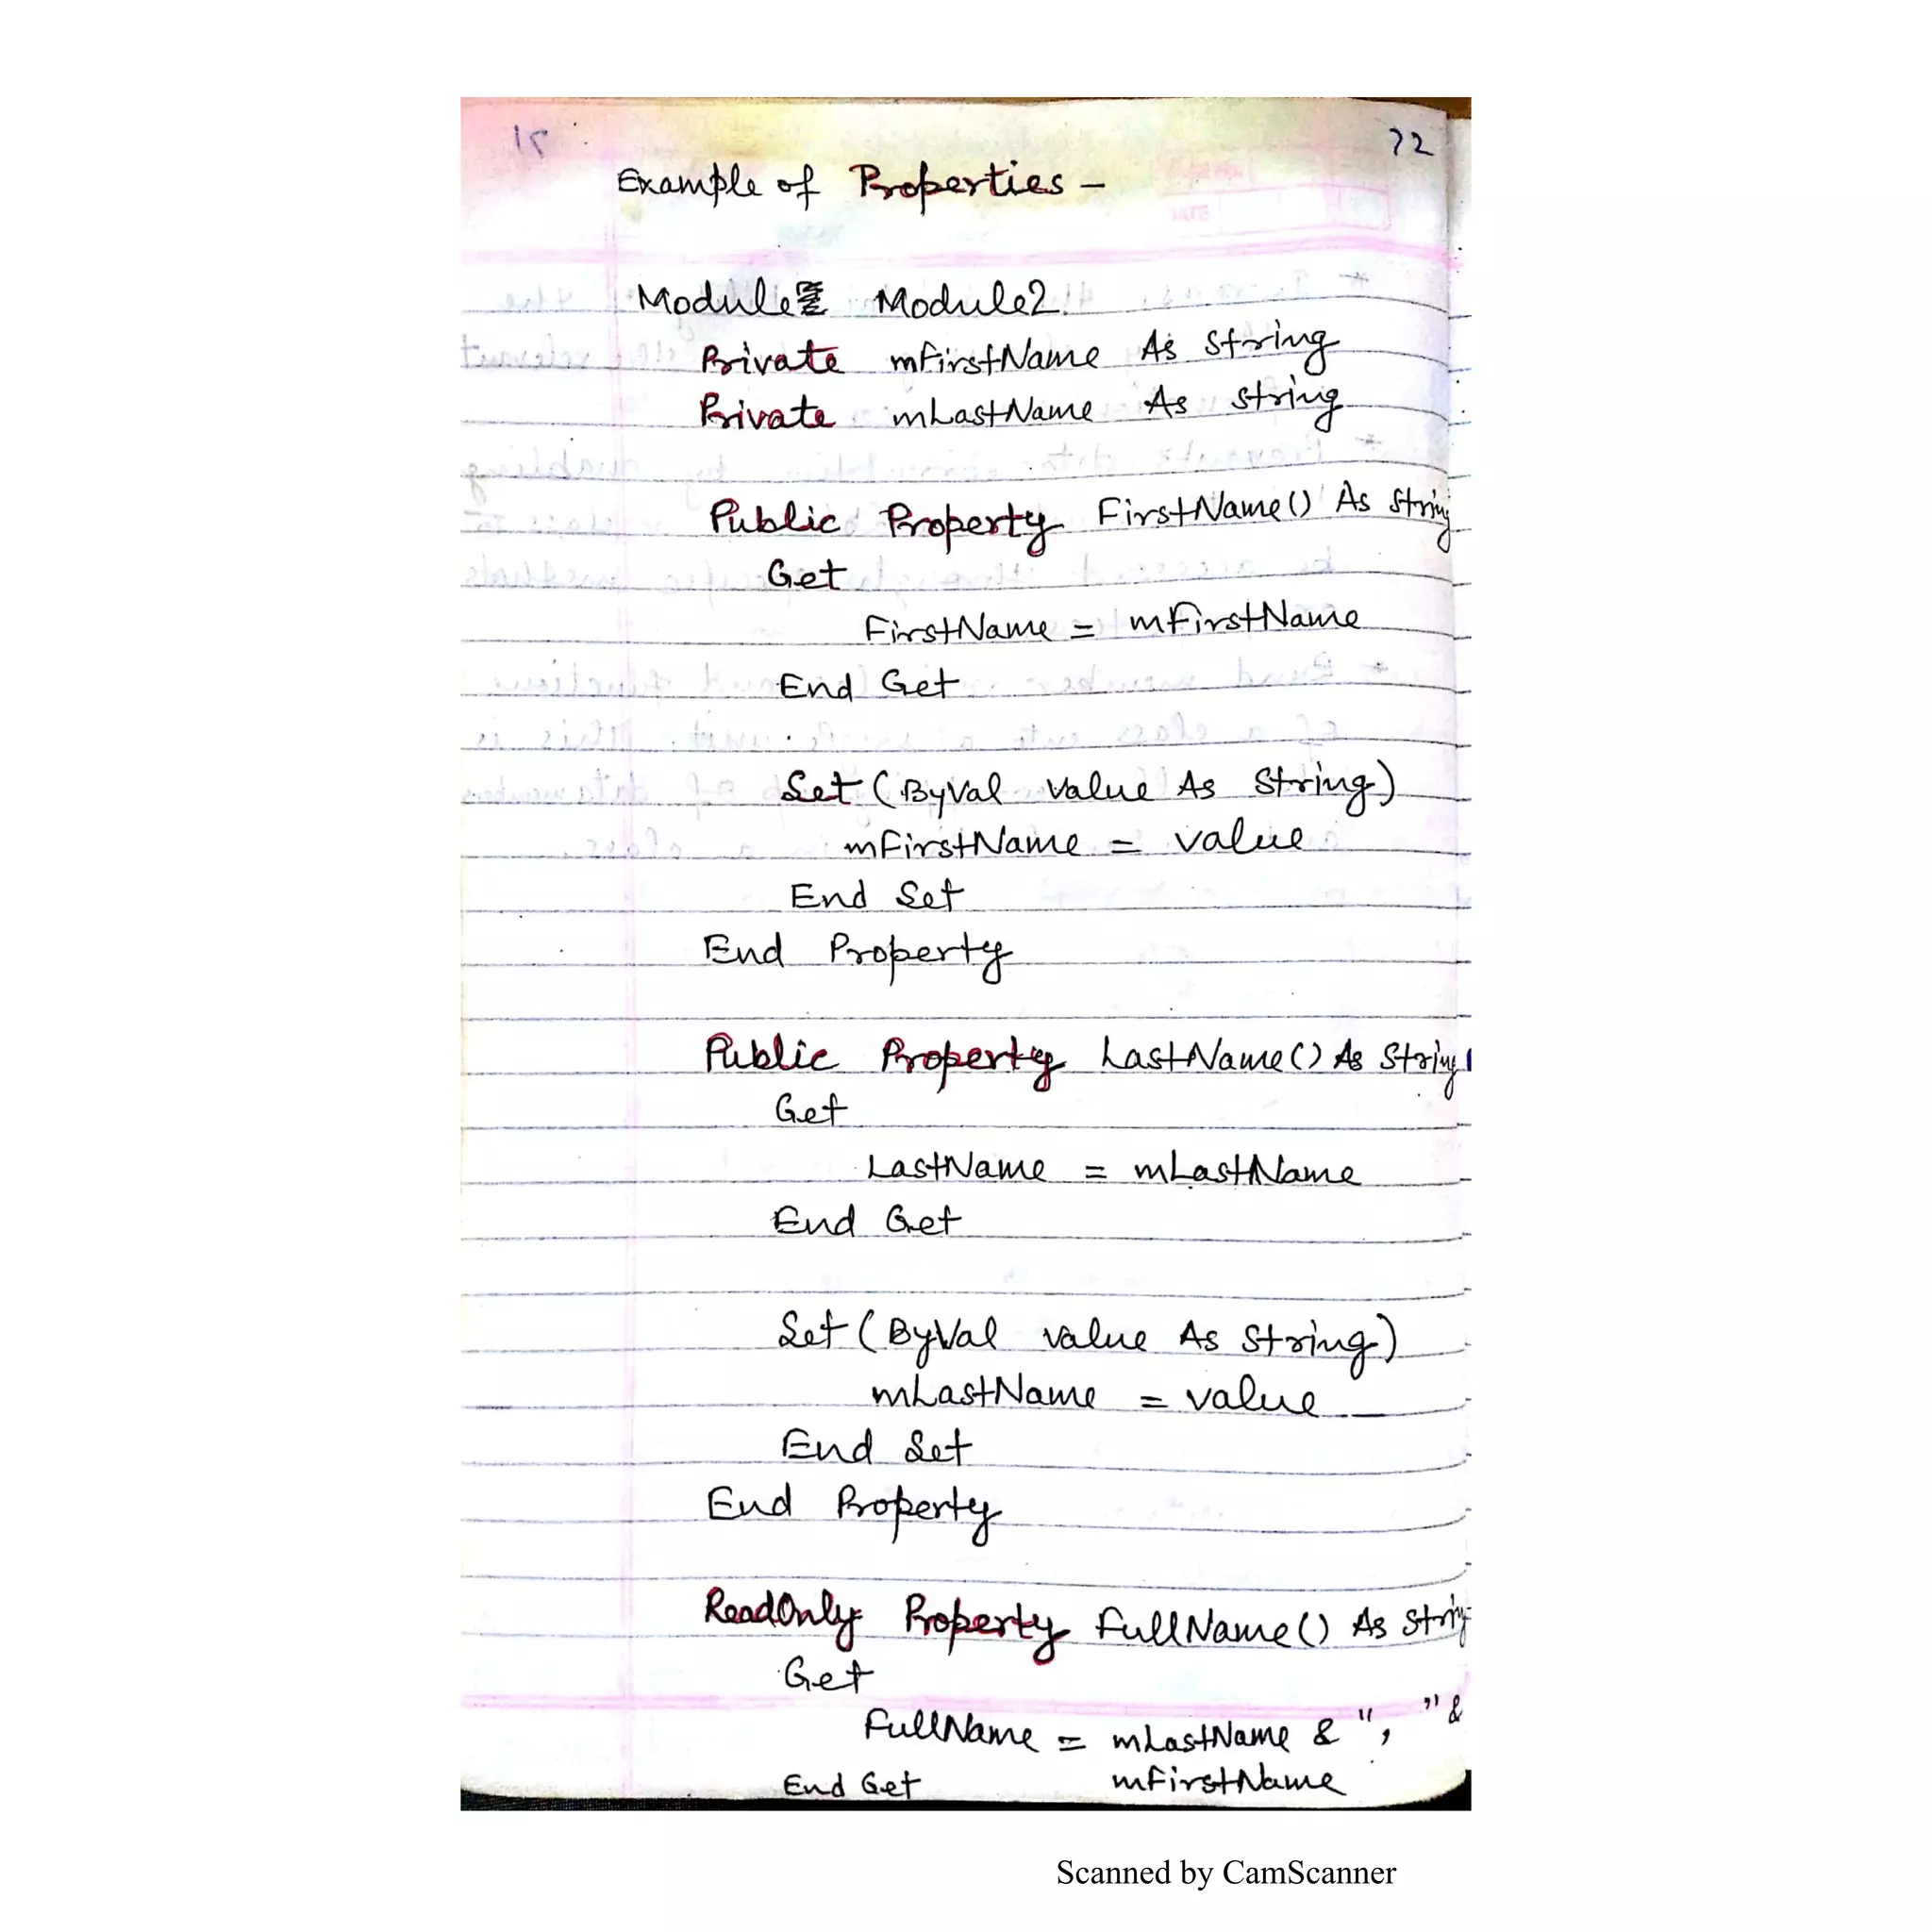 72
Example of Properties -
Module Module2
Private mFirstName As String
Private mLastName As String
Public Property FirstName() As String
Get
FirstName = mFirstName
End Get
Set (ByVal value As String)
mFirstName = value
End Set
End Property
Public Property LastName() As String
Get
LastName = mLastName
End Get
Set (ByVal value As String)
mLastName = value
End Set
End Property
ReadOnly Property FullName() As String
Get
FullName = mLastName & ", " &
End Get mFirstName
Scanned by CamScanner